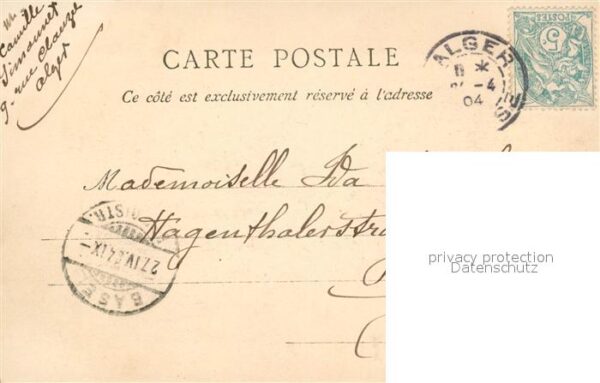 Mr
Camille
Simounet
9 rue Clauzel
Alger
CARTE POSTALE
Ce côté est exclusivement réservé à l'adresse
ALGER
04
POSTES
5
Mademoiselle Ida
Hagenthalerstra
BASEL
27.IV.04.IX
privacy protection
Datenschutz